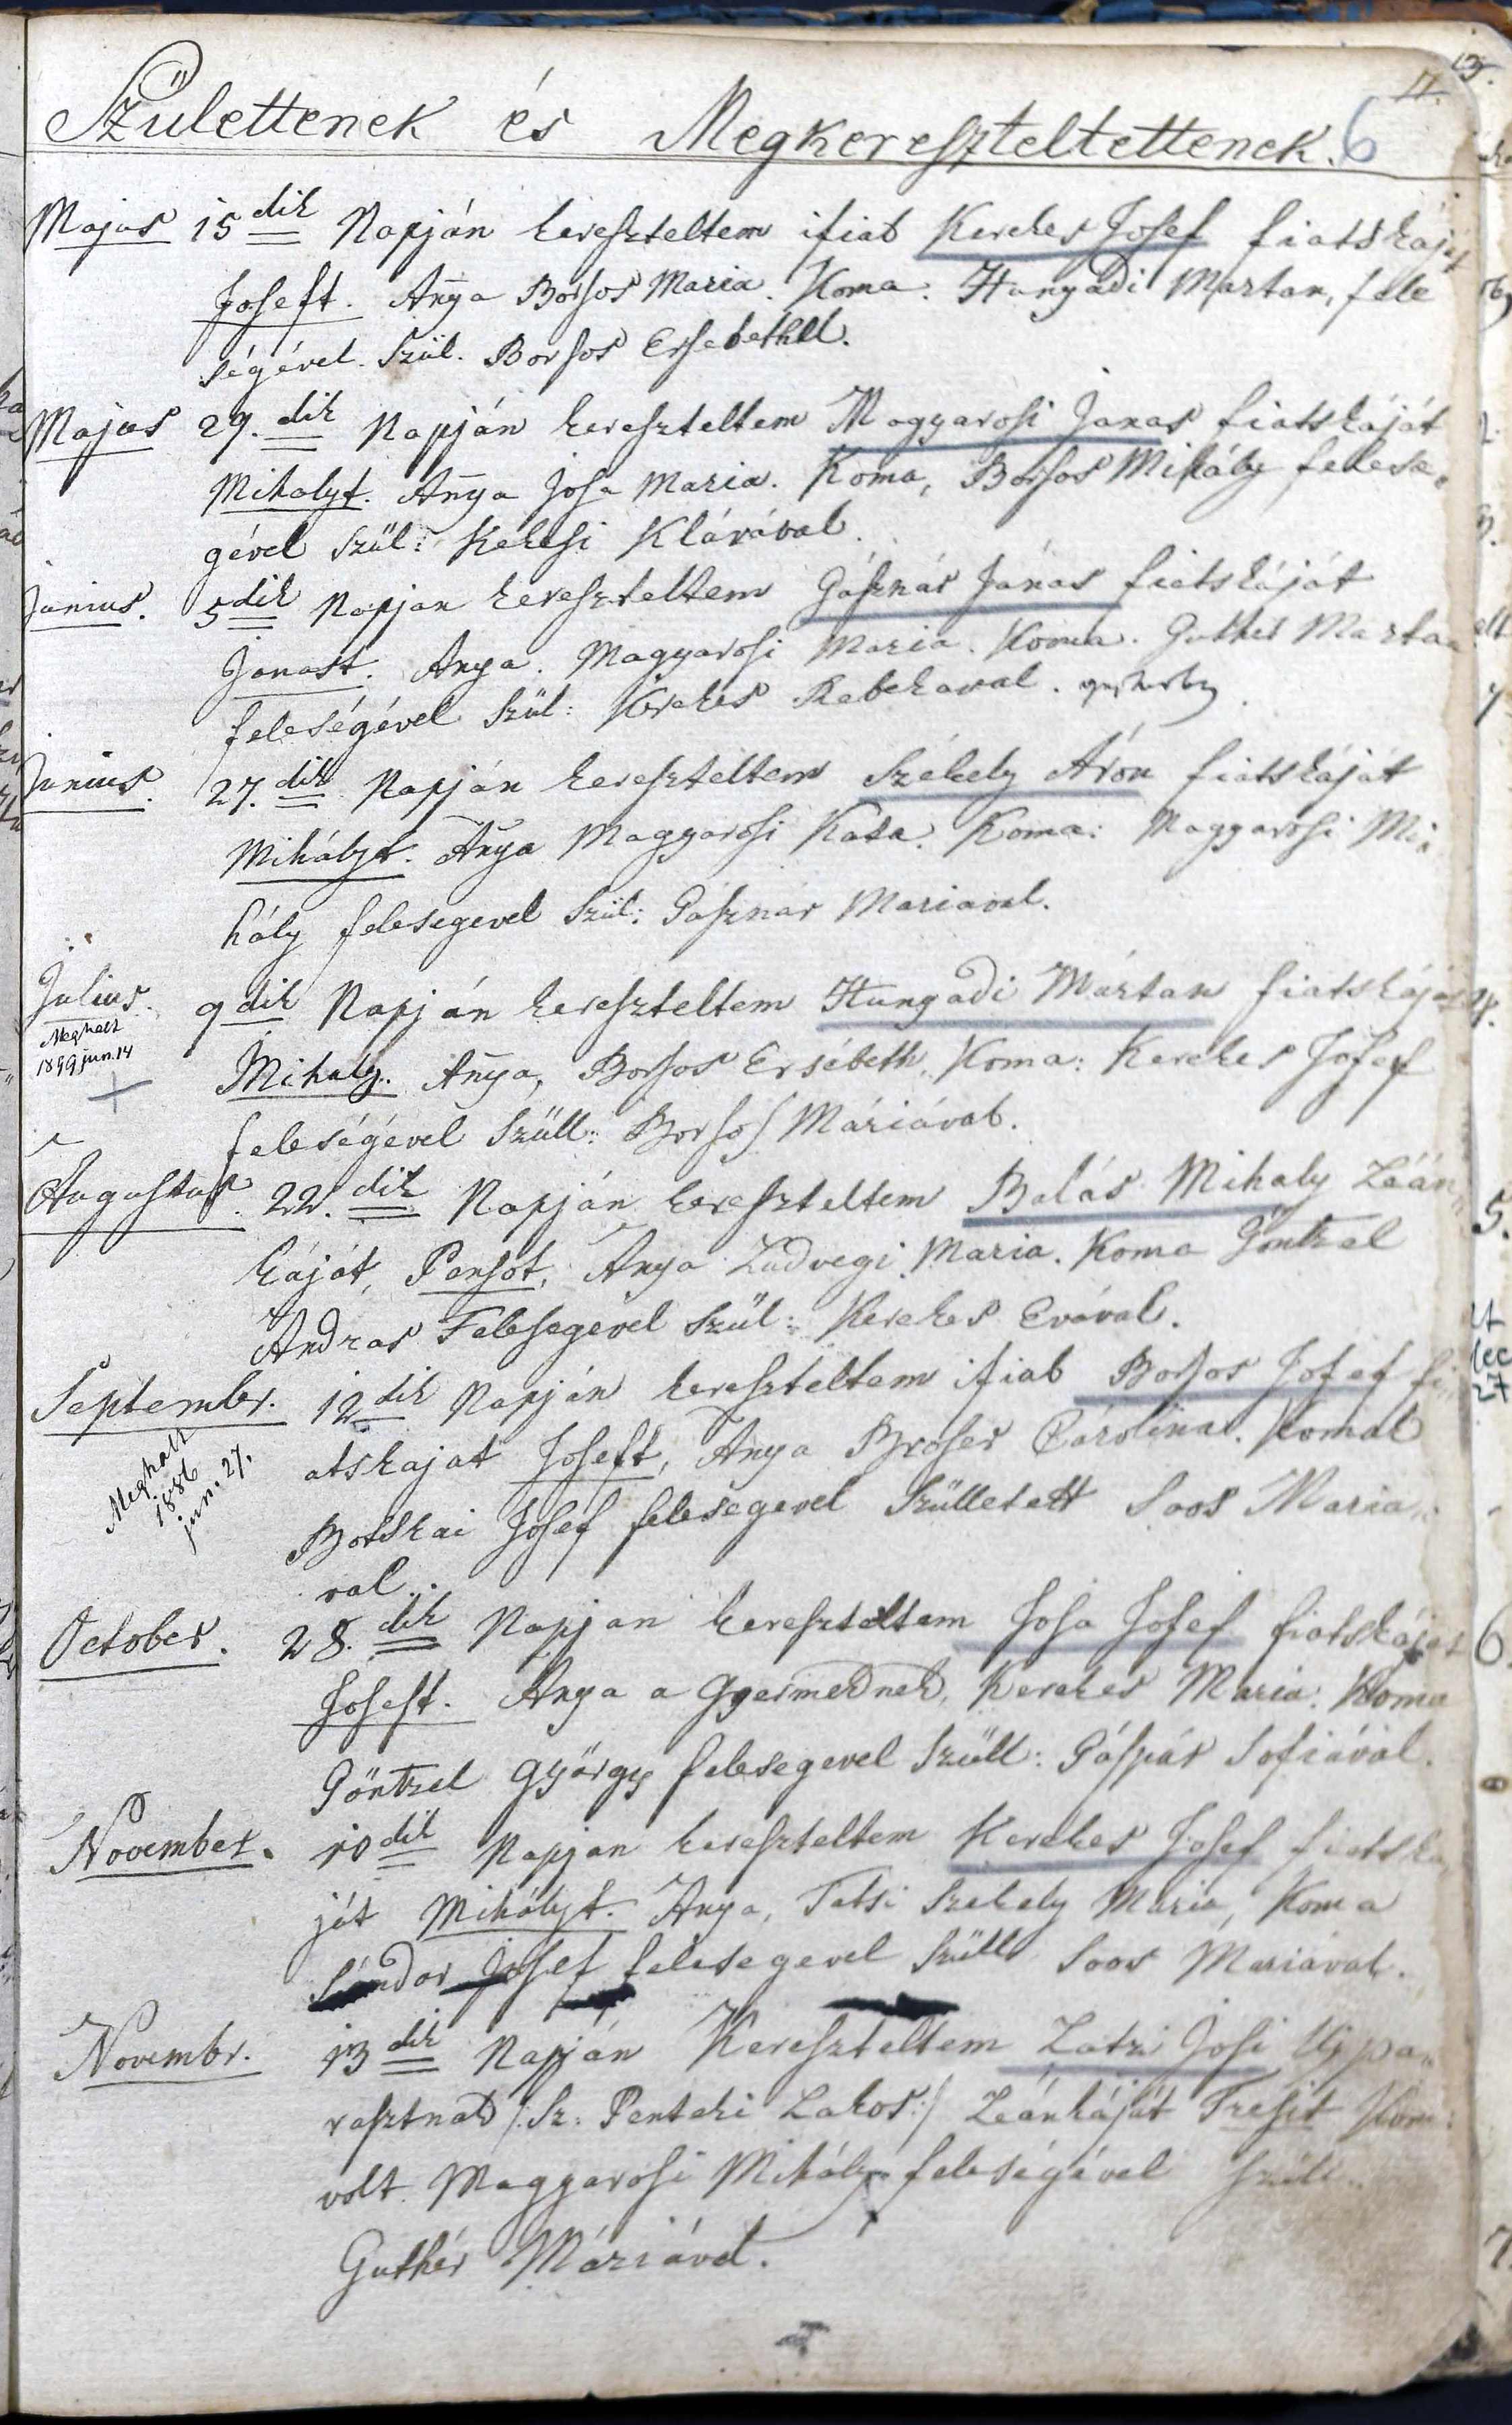 11.
Születtenek és Megkereszteltettenek. 6
Majus 15dik Napján kereszteltem ifiab Kerekes Josef fiatskáját
Joseft. Anya Borsos Maria. Koma. Hunyadi Martan, fele
ségével. Szül. Borsos Ersebethel.
Majus 29.dik Napján kereszteltem Magyarosi Janas fiatskáját
Mihalyt. Anya Josa Maria. Koma, Borsos Mihály felese-
gével Szül: Kekesi Klárával.
Junius. 5dik Napjan kereszteltem Gásznár Jánas fiatskáját
Janast. Anya. Magyarosi Maria. Koma. Guther Martan
feleségével Szül: Kerekes Rebekaval.
Junius. 27.dik Napján kereszteltem Székely Áron fiatskáját
Mihályt. Anya Magyarosi Kata. Koma: Magyarosi Mi-
hály felesegevel Szül: Gasznar Mariaval.
Julius. 9dik Napján kereszteltem Hunyadi Mártan fiatskáját
Meghalt
1899 jun. 14
Mihaly. Anya, Borsos Ersébeth. Koma: Kerekes Josef
feleségével Szüll: Borsos Máriával.
Augustus. 22.dik Napján kereszteltem Balás Mihaly Leán-
káját, Persot, Anya Ludvegi Maria. Koma Göntzel
Andras Felesegevel Szül: Kerekes Evával.
Septembr. 12dik Napján kereszteltem ifiab Borsos Josef fi-
Meghalt
1886
jun. 27.
atskajat Joseft, Anya Broser Carolina. Komak
Botskai Josef felesegevel Szülletett Soos Maria-
val.
October. 28.dik Napjan kereszteltem Josa Josef fiatskáját
Joseft. Anya a Gyermeknek, Kerekes Maria. Koma
Göntzel György felesegevel Szüll: Gáspár Sofiával.
November. 10dik Napjan kereszteltem Kerekes Josef fiatská
ját Mihályt. Anya, Tatsi Szekely Maria, Koma
Sándor Josef felesegevel Szüll Soos Mariával.
Novembr. 13dik Napján Kereszteltem Latzi Josi Uj pa-
rasztnak /: Sz: Penteki Lakos :/ Leánkáját Tresit Kom:
volt Magyarosi Mihály feleségével szül:
Guthér Máriával.